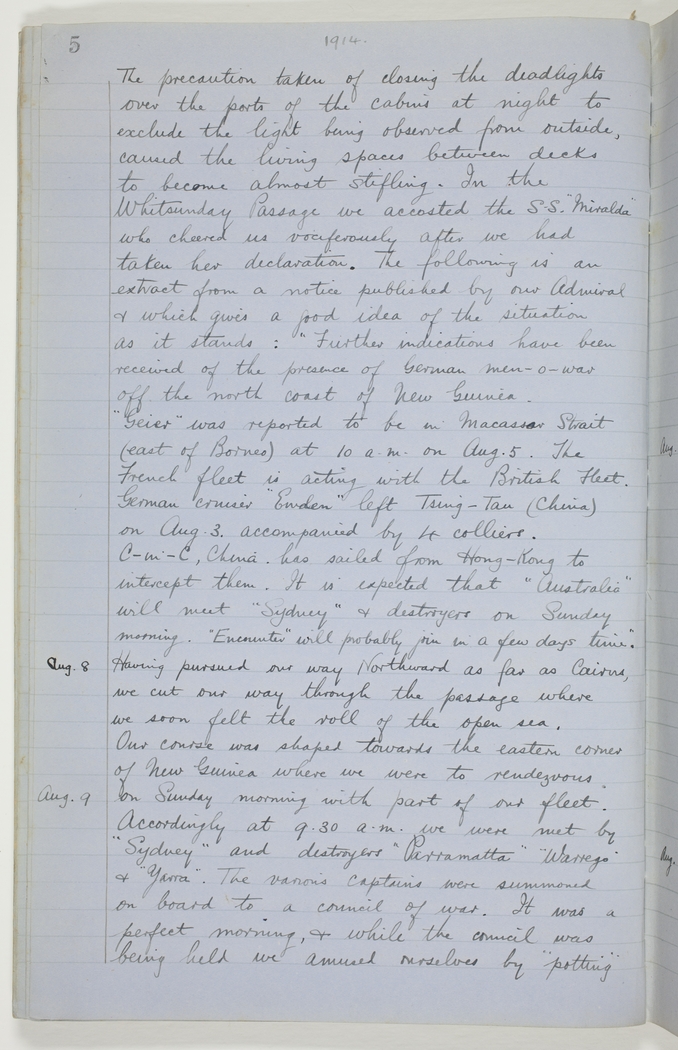 5
1914.
The precaution taken of closing the deadlights
over the ports of the cabins at night to
exclude the light being observed from outside,
caused the living spaces between decks
to become almost stifling. In the
Whitsunday Passage we accosted the S.S. "Miralda"
who cheered us vociferously after we had
taken her declaration. The following is an
extract from a notice published by our Admiral
& which gives a good idea of the situation
as it stands : "Further indications have been
received of the presence of German men-o-war
off the north coast of New Guinea.
"Geier" was reported to be in Macassar Strait
(east of Borneo) at 10 a.m. on Aug. 5. The
French fleet is acting with the British Fleet.
German cruiser "Emden" left Tsing-Tau (China)
on Aug. 3. accompanied by 4 colliers.
C-in-C, China. has sailed from Hong-Kong to
intercept them. It is expected that "Australia"
will meet "Sydney" & destroyers on Sunday
morning. "Encounter" will probably join in a few days time".
Aug. 8 Having pursued our way Northward as far as Cairns,
we cut our way through the passage where
we soon felt the roll of the open sea.
Our course was shaped towards the eastern corner
of New Guinea where we were to rendezvous
Aug. 9 on Sunday morning with part of our fleet.
Accordingly at 9.30 a.m. we were met by
"Sydney" and destroyers "Parramatta" "Warrego"
& "Yarra". The various captains were summoned
on board to a council of war. It was a
perfect morning, & while the council was
being held we amused ourselves by "potting"
Aug.
Aug.